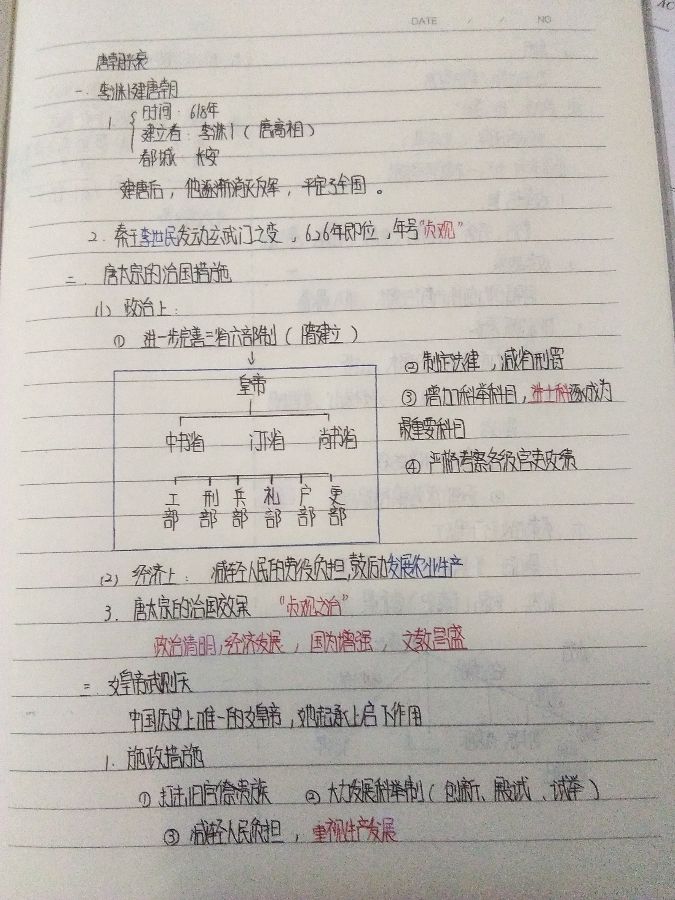 DATE / / NO
AC
唐朝兴衰
一. 李渊建唐朝
1. { 时间: 618年
建立者: 李渊 (唐高祖)
都城: 长安
建唐后, 他逐渐消灭反军, 平定了全国。
2. 秦王李世民发动玄武门之变, 626年即位, 年号"贞观"
二. 唐太宗的治国措施
(1) 政治上:
① 进一步完善三省六部制 (隋建立)
↓
皇帝
中书省 门下省 尚书省
工部 刑部 兵部 礼部 户部 吏部
② 制定法律, 减省刑罚
③ 增加科举科目, 进士科逐成为
最重要科目
④ 严格考察各级官吏政绩
(2) 经济上: 减轻人民的劳役负担, 鼓励发展农业生产
3. 唐太宗的治国效果 "贞观之治"
政治清明, 经济发展, 国力增强, 文教昌盛
三 女皇帝武则天
中国历史上唯一的女皇帝, 她起承上启下作用
1. 施政措施
① 打击旧官僚贵族 ② 大力发展科举制 (创新、殿试、试举)
③ 减轻人民负担, 重视生产发展